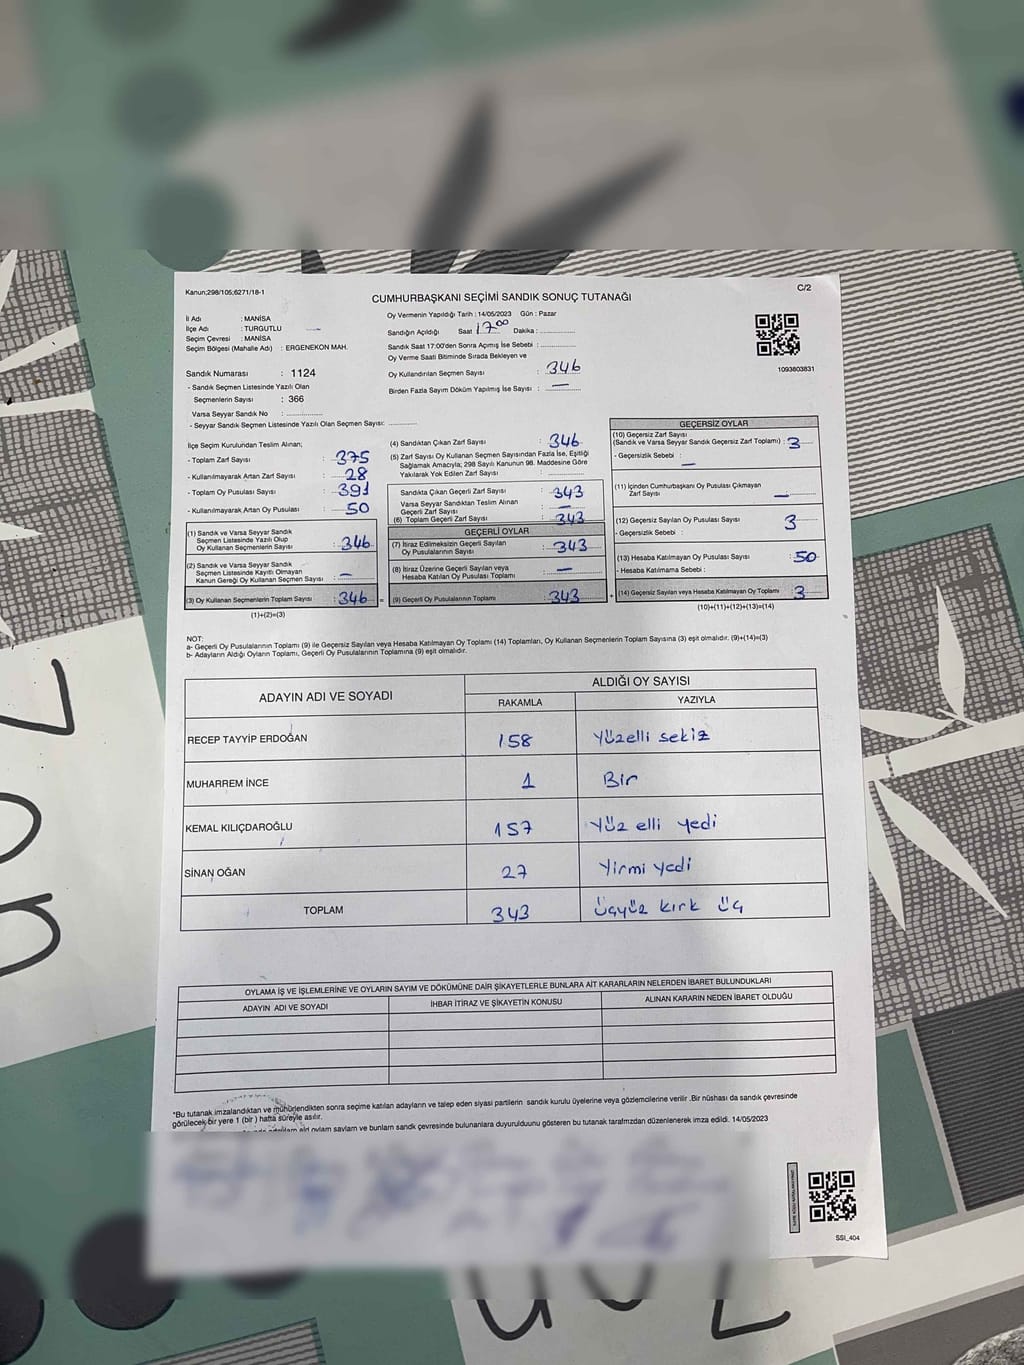 Kanun;298/105;6271/18-1
C/2
CUMHURBAŞKANI SEÇİMİ SANDIK SONUÇ TUTANAĞI
İl Adı : MANİSA
İlçe Adı : TURGUTLU
Seçim Çevresi : MANİSA
Seçim Bölgesi (Mahalle Adı) : ERGENEKON MAH.
Oy Vermenin Yapıldığı Tarih : 14/05/2023 Gün : Pazar
Sandığın Açıldığı Saat 17:00 Dakika : ............
Sandık Saat 17:00'den Sonra Açımış İse Sebebi : ............
Oy Verme Saati Bitiminde Sırada Bekleyen ve
Oy Kullandırılan Seçmen Sayısı : 346
Birden Fazla Sayım Döküm Yapılmış İse Sayısı : —
1093803831
Sandık Numarası : 1124
- Sandık Seçmen Listesinde Yazılı Olan
Seçmenlerin Sayısı : 366
Varsa Seyyar Sandık No : ............
- Seyyar Sandık Seçmen Listesinde Yazılı Olan Seçmen Sayısı: ............
İlçe Seçim Kurulundan Teslim Alınan;
- Toplam Zarf Sayısı : 375
- Kullanılmayarak Artan Zarf Sayısı : 28
- Toplam Oy Pusulası Sayısı : 391
- Kullanılmayarak Artan Oy Pusulası : 50
(1) Sandık ve Varsa Seyyar Sandık
Seçmen Listesinde Yazılı Olup
Oy Kullanan Seçmenlerin Sayısı : 346
(2) Sandık ve Varsa Seyyar Sandık
Seçmen Listesinde Kayıtlı Olmayan
Kanun Gereği Oy Kullanan Seçmen Sayısı : —
(3) Oy Kullanan Seçmenlerin Toplam Sayısı : 346 =
(1)+(2)=(3)
(4) Sandıktan Çıkan Zarf Sayısı : 346
(5) Zarf Sayısı Oy Kullanan Seçmen Sayısından Fazla İse, Eşitliği
Sağlamak Amacıyla; 298 Sayılı Kanunun 98. Maddesine Göre
Yakılarak Yok Edilen Zarf Sayısı : ............
Sandıkta Çıkan Geçerli Zarf Sayısı : 343
Varsa Seyyar Sandıktan Teslim Alınan
Geçerli Zarf Sayısı : —
(6) Toplam Geçerli Zarf Sayısı : 343
GEÇERLİ OYLAR
(7) İtiraz Edilmeksizin Geçerli Sayılan
Oy Pusulalarının Sayısı : 343
(8) İtiraz Üzerine Geçerli Sayılan veya
Hesaba Katılan Oy Pusulası Toplamı : —
(9) Geçerli Oy Pusulalarının Toplamı : 343 +
GEÇERSİZ OYLAR
(10) Geçersiz Zarf Sayısı
(Sandık ve Varsa Seyyar Sandık Geçersiz Zarf Toplamı) : 3
- Geçersizlik Sebebi : —
(11) İçinden Cumhurbaşkanı Oy Pusulası Çıkmayan
Zarf Sayısı : —
(12) Geçersiz Sayılan Oy Pusulası Sayısı : 3
- Geçersizlik Sebebi :
(13) Hesaba Katılmayan Oy Pusulası Sayısı : 50
- Hesaba Katılmama Sebebi :
(14) Geçersiz Sayılan veya Hesaba Katılmayan Oy Toplamı : 3
(10)+(11)+(12)+(13)=(14)
NOT:
a- Geçerli Oy Pusulalarının Toplamı (9) ile Geçersiz Sayılan veya Hesaba Katılmayan Oy Toplamı (14) Toplamları, Oy Kullanan Seçmenlerin Toplam Sayısına (3) eşit olmalıdır. (9)+(14)=(3)
b- Adayların Aldığı Oyların Toplamı, Geçerli Oy Pusulalarının Toplamına (9) eşit olmalıdır.
ADAYIN ADI VE SOYADI
ALDIĞI OY SAYISI
RAKAMLA YAZIYLA
RECEP TAYYİP ERDOĞAN 158 Yüzelli sekiz
MUHARREM İNCE 1 Bir
KEMAL KILIÇDAROĞLU 157 Yüz elli yedi
SİNAN OĞAN 27 Yirmi yedi
TOPLAM 343 Üçyüz kırk üç
OYLAMA İŞ VE İŞLEMLERİNE VE OYLARIN SAYIM VE DÖKÜMÜNE DAİR ŞİKAYETLERLE BUNLARA AİT KARARLARIN NELERDEN İBARET BULUNDUKLARI
ADAYIN ADI VE SOYADI İHBAR İTİRAZ VE ŞİKAYETİN KONUSU ALINAN KARARIN NEDEN İBARET OLDUĞU
*Bu tutanak imzalandıktan ve mühürlendikten sonra seçime katılan adayların ve talep eden siyasi partilerin sandık kurulu üyelerine veya gözlemcilerine verilir .Bir nüshası da sandık çevresinde
görülecek bir yere 1 (bir ) hafta süreyle asılır.
bulunanlara duyurulduunu gösteren bu tutanak tarafımzdan düzenlenerek imza edildi. 14/05/2023
SSI_404